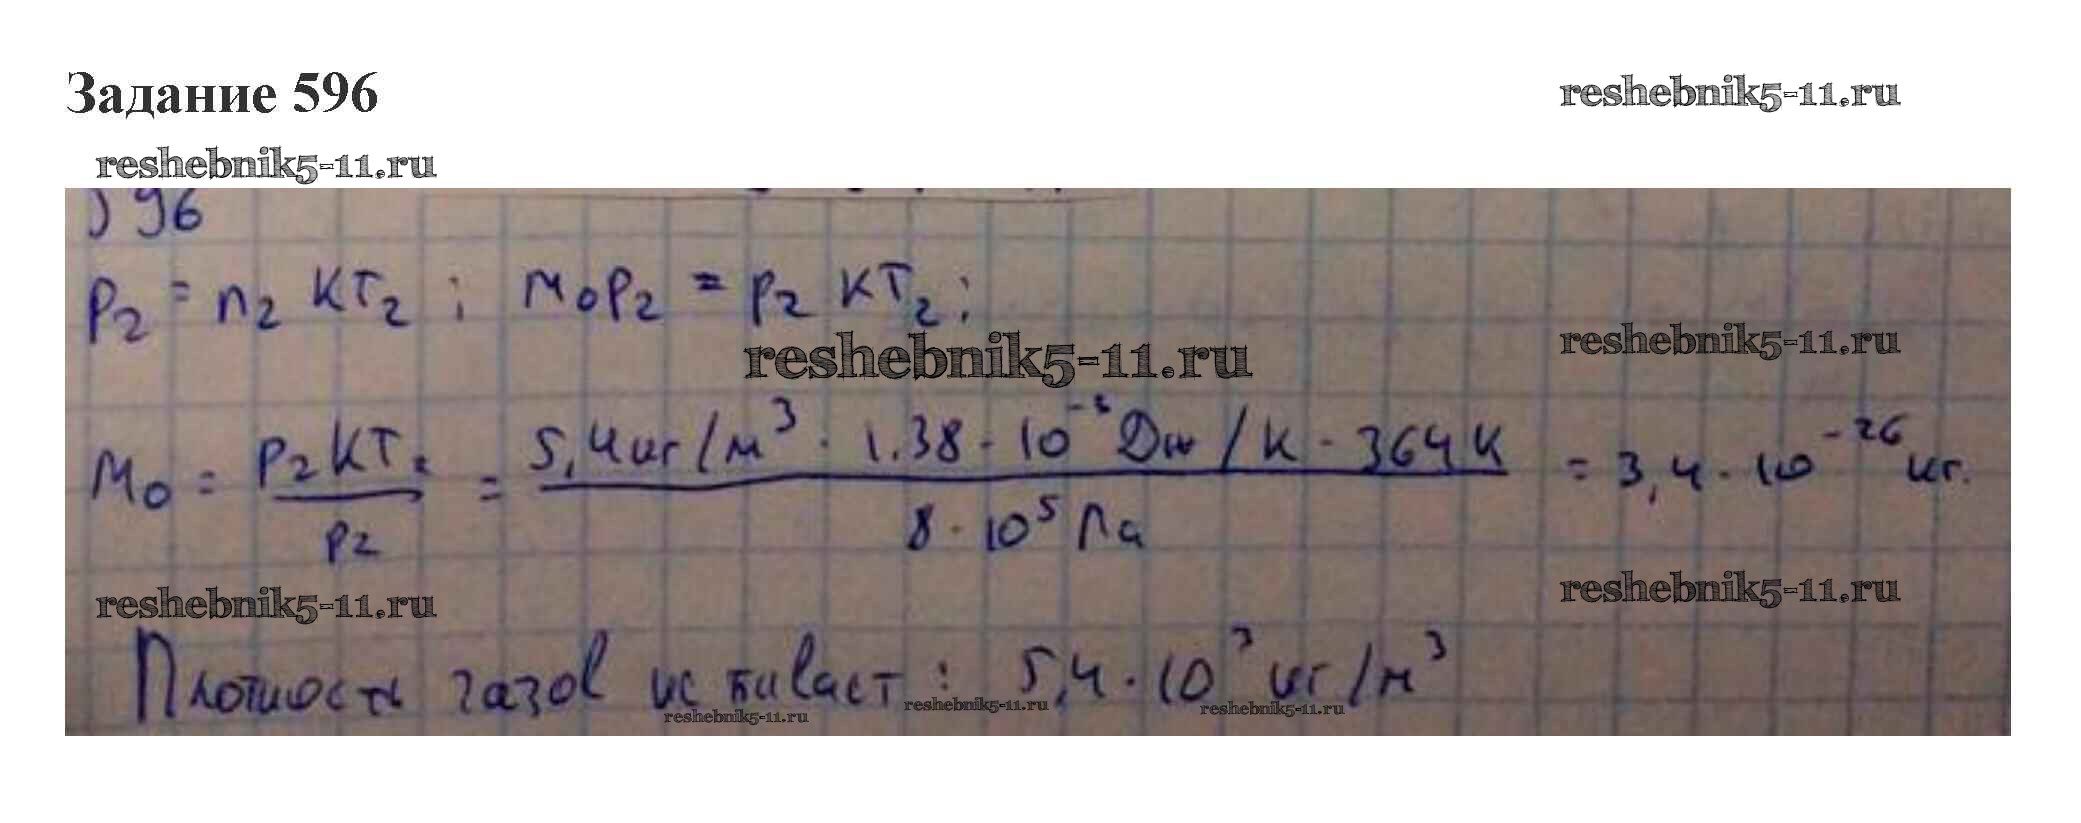 Задание 596
reshebnik5-11.ru
reshebnik5-11.ru
596
p₂ = n₂ KT₂ ; m₀p₂ = p₂ KT₂ ;
reshebnik5-11.ru
reshebnik5-11.ru
m₀ = p₂KT₂ / p₂ = 5,4кг/м³ · 1.38 · 10 Дж/К · 364К / 8 · 10⁵ Па = 3,4 · 10⁻²⁶ кг.
reshebnik5-11.ru
reshebnik5-11.ru
Плотность газов : 5,4 · 10³ кг/м³
reshebnik5-11.ru
reshebnik5-11.ru
reshebnik5-11.ru